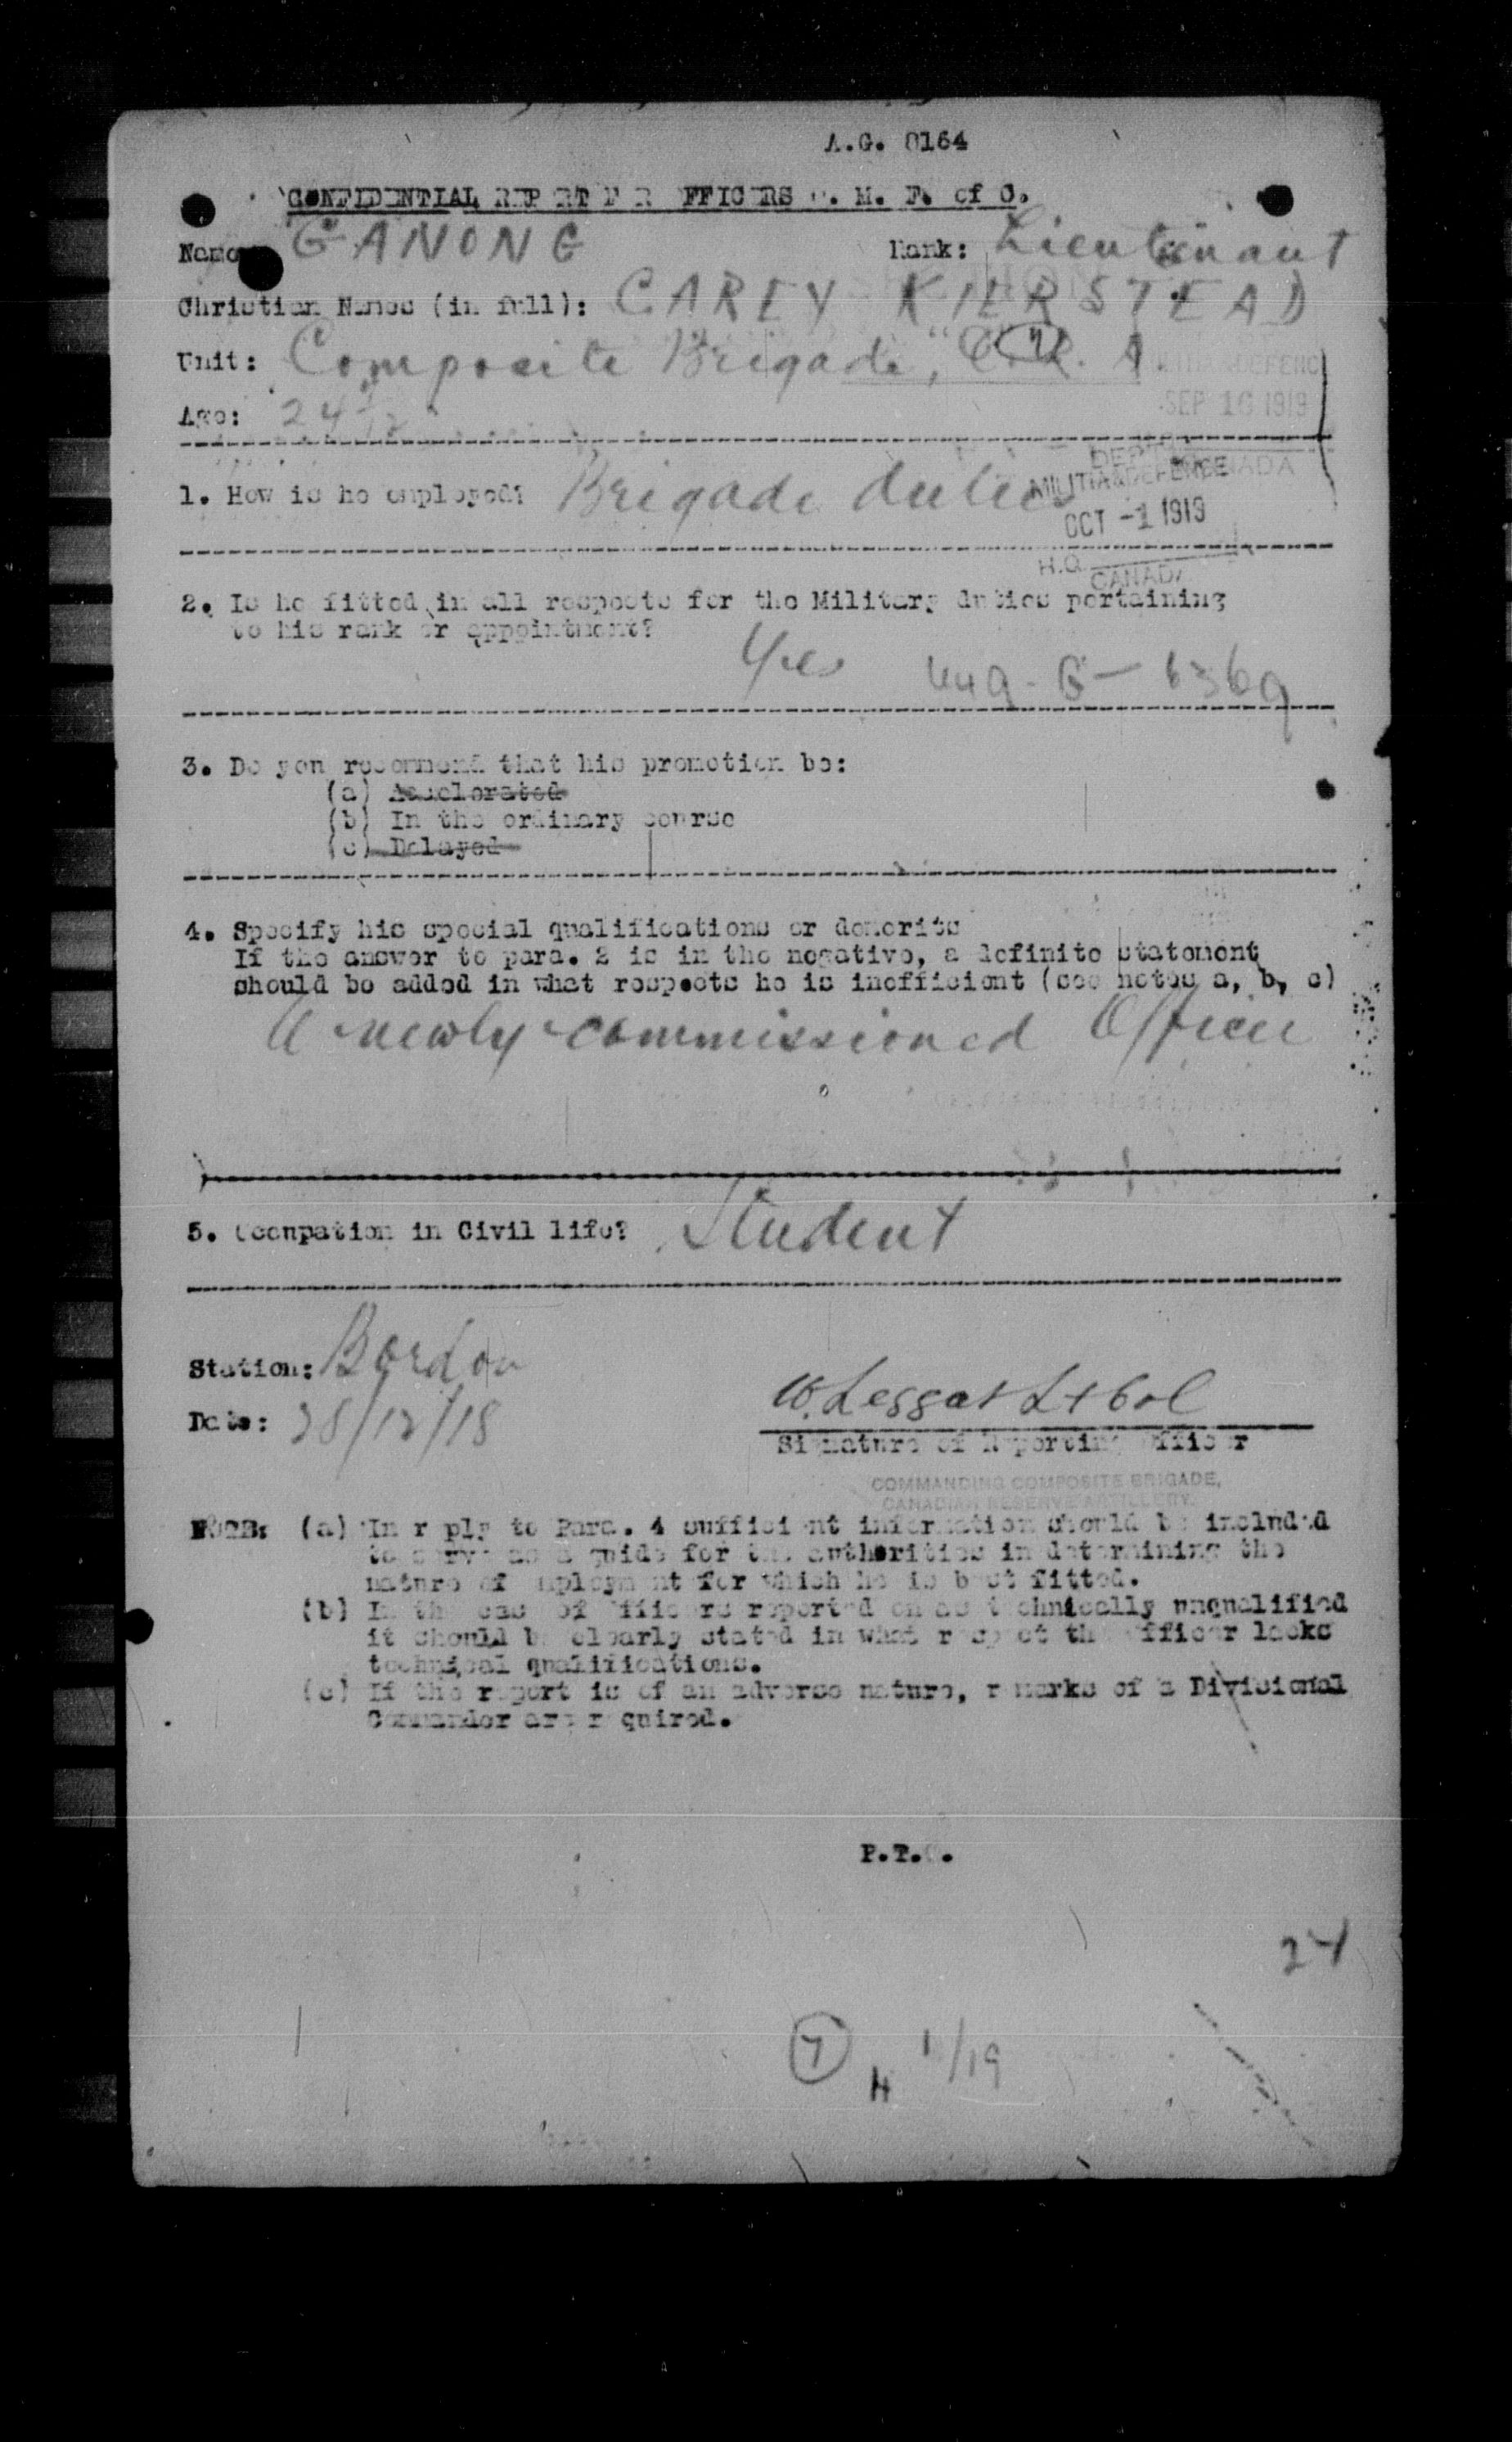 A.G. 8164
CONFIDENTIAL REPORT FOR OFFICERS O. M. F. of C.
Name GANONG Rank: Lieutenant
Christian Names (in full): CAREY KIERSTEAD
Unit: Composite Brigade, C.R.A
Age: 24 1/2
SEP 16 1919
DEPT.
MILITIA & DEFENCE
OCT -1 1919
H.Q.
CANADA
1. How is he employed? Brigade duties
2. Is he fitted in all respects for the Military duties pertaining
to his rank or appointment?
Yes 649-G-6369
3. Do you recommend that his promotion be:
(a) Accelerated
(b) In the ordinary course
(c) Delayed
4. Specify his special qualifications or demerits
If the answer to para. 2 is in the negative, a definite statement
should be added in what respects he is inefficient (see notes a, b, c)
A newly commissioned Officer
5. Occupation in Civil life? Student
Station: Bordon
Date: 28/12/18
W. Leggat Lt Col
Signature of Reporting Officer
COMMANDING COMPOSITE BRIGADE,
CANADIAN RESERVE ARTILLERY.
NOTE: (a) In reply to Para. 4 sufficient information should be included
to serve as a guide for the authorities in determining the
nature of employment for which he is best fitted.
(b) In the case of officers reported on as technically unqualified
it should be clearly stated in what respect the officer lacks
technical qualifications.
(c) If the report is of an adverse nature, remarks of a Divisional
Commander are required.
P.T.O.
24
7 H 1/19